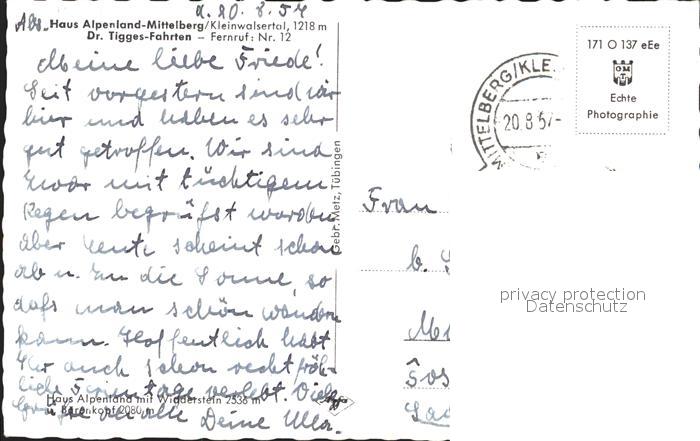 d. 20.8.57
Abs.
Haus Alpenland-Mittelberg/Kleinwalsertal, 1218 m
Dr. Tigges-Fahrten – Fernruf: Nr. 12
Meine liebe Friede!
Seit vorgestern sind wir
hier und haben es sehr
gut getroffen. Wir sind
zwar mit tüchtigem
Regen begrüßt worden
aber heute scheint schon
ab u. zu die Sonne, so
daß man schön wandern
kann. Hoffentlich habt
Ihr auch schon recht fröh-
liche Ferientage verlebt. Viele
Grüße an alle Deine Ulla.
Haus Alpenland mit Widderstein 2536 m
u. Bärenkopf 2080 m
Gebr. Metz, Tübingen
MITTELBERG/KLE
20.8.57-
171 O 137 eEe
Echte
Photographie
Frau
b.
privacy protection
Datenschutz